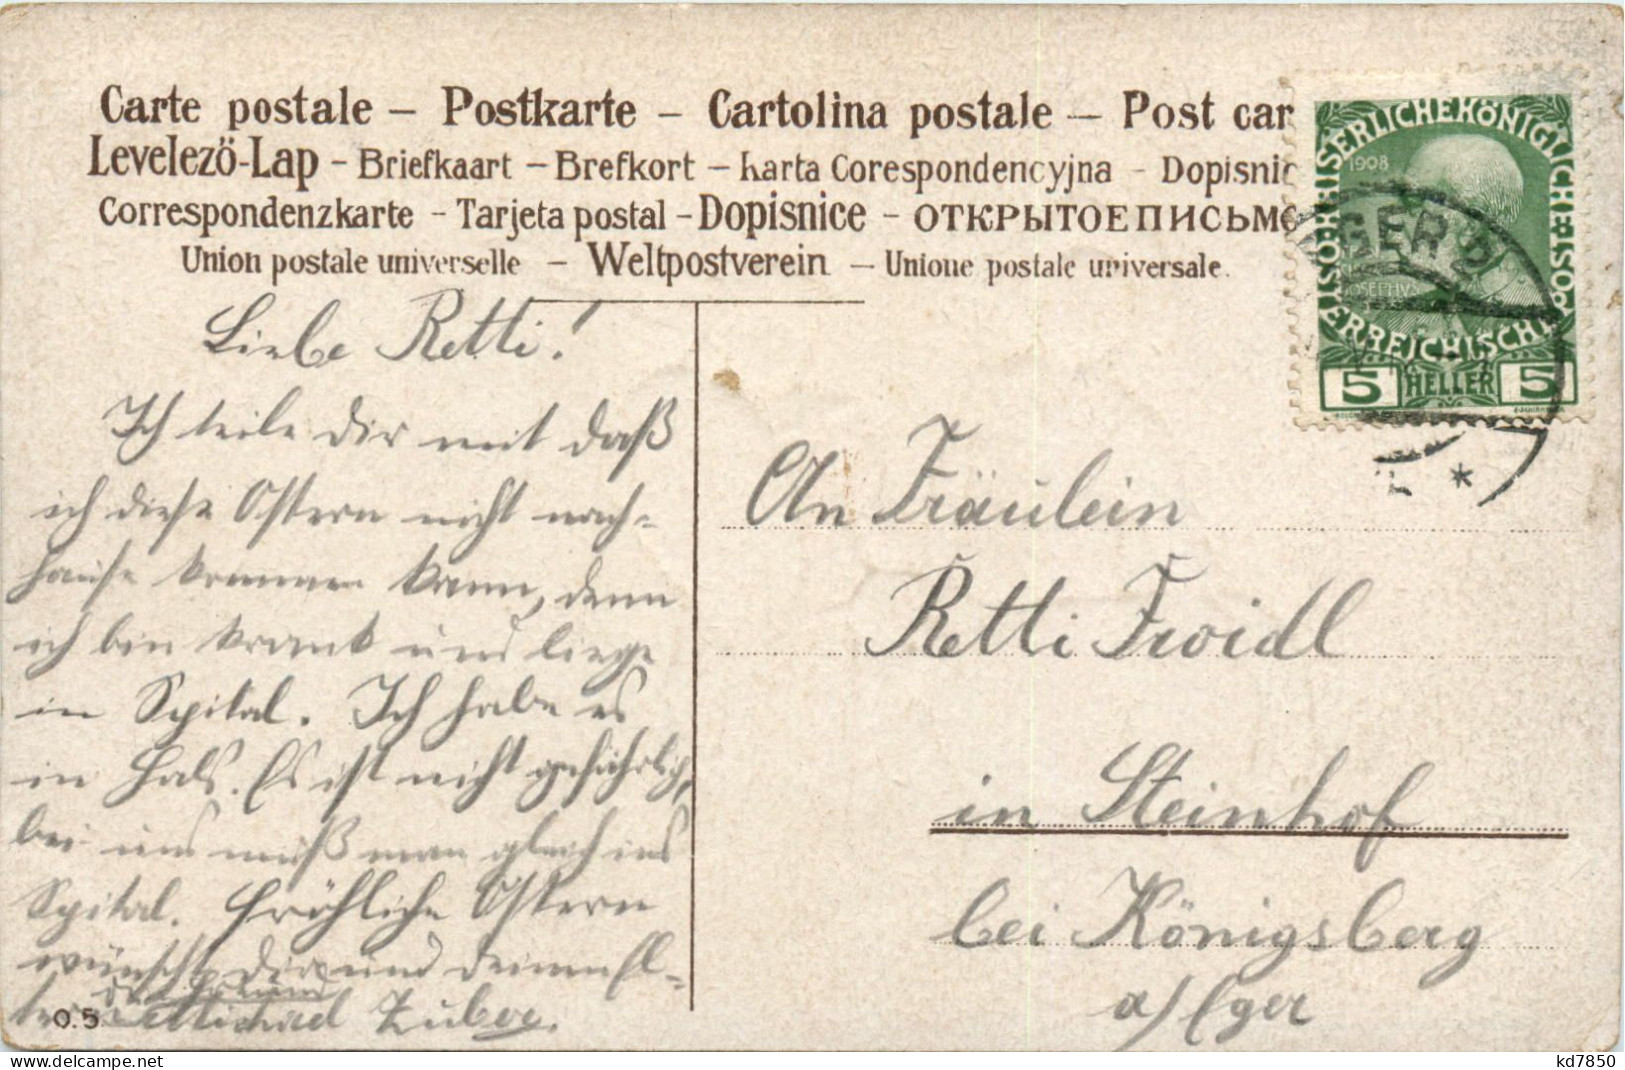 Carte postale – Postkarte – Cartolina postale – Post car
Levelező-Lap – Briefkaart – Brefkort – Karta Corespondencyjna – Dopisnic
Correspondenzkarte – Tarjeta postal – Dopisnice – ОТКРЫТОЕ ПИСЬМО
Union postale universelle – Weltpostverein – Unione postale universale.
KAISERLICHEKÖNIGLICHE
ÖSTERREICHISCHE POST
1908
5 HELLER 5
EGER 2
Liebe Retti!
Ich teile dir mit daß
ich diese Ostern nicht nach-
hause kommen kann, denn
ich bin krank und liege
in Spital. Ich habe es
in Hals. Es ist nicht gefährlich,
bei uns muß man gleich ins
Spital. Fröhliche Ostern
wünscht dir und deinen El-
tern
Michael Zuber.
O.5
An Fräulein
Retti Froidl
in Steinhof
bei Königsberg
a/Eger
delcampe.net
kd7850